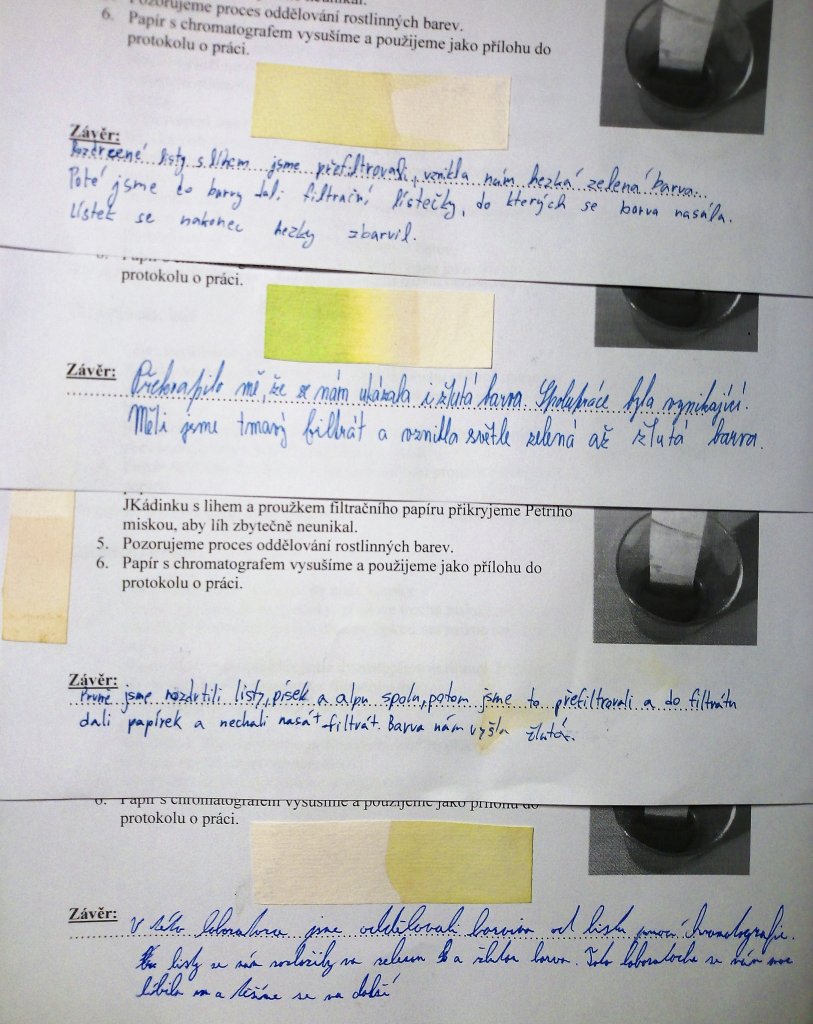 Pozorujeme proces oddělování rostlinných barev.
6. Papír s chromatografem vysušíme a použijeme jako přílohu do
protokolu o práci.
Závěr:
Rozdrcené listy s líhem jsme přefiltrovali, vznikla nám hezká zelená barva.
Poté jsme do barvy dali filtrační lístečky, do kterých se barva nasála.
Lístek se nakonec hezky zbarvil.
protokolu o práci.
Závěr:
Překvapilo mě, že se nám ukázala i žlutá barva. Spolupráce byla vynikající.
Měli jsme tmavý filtrát a vznikla světle zelená až žlutá barva.
JKádinku s lihem a proužkem filtračního papíru přikryjeme Petriho
miskou, aby líh zbytečně neunikal.
5. Pozorujeme proces oddělování rostlinných barev.
6. Papír s chromatografem vysušíme a použijeme jako přílohu do
protokolu o práci.
Závěr:
Prvně jsme rozdrtili listy, písek a alpu spolu, potom jsme to přefiltrovali a do filtrátu
dali papírek a nechali nasát filtrát. Barva nám vyšla žlutá.
6. Papír s chromatografem vysušíme a použijeme jako přílohu do
protokolu o práci.
Závěr:
V této laboratoři jsme oddělovali barviva od listu pomocí chromatografie.
listy se nám rozložily na zelenou a žlutou barvu. Tato laboratorka se nám moc
líbila a těšíme se na další